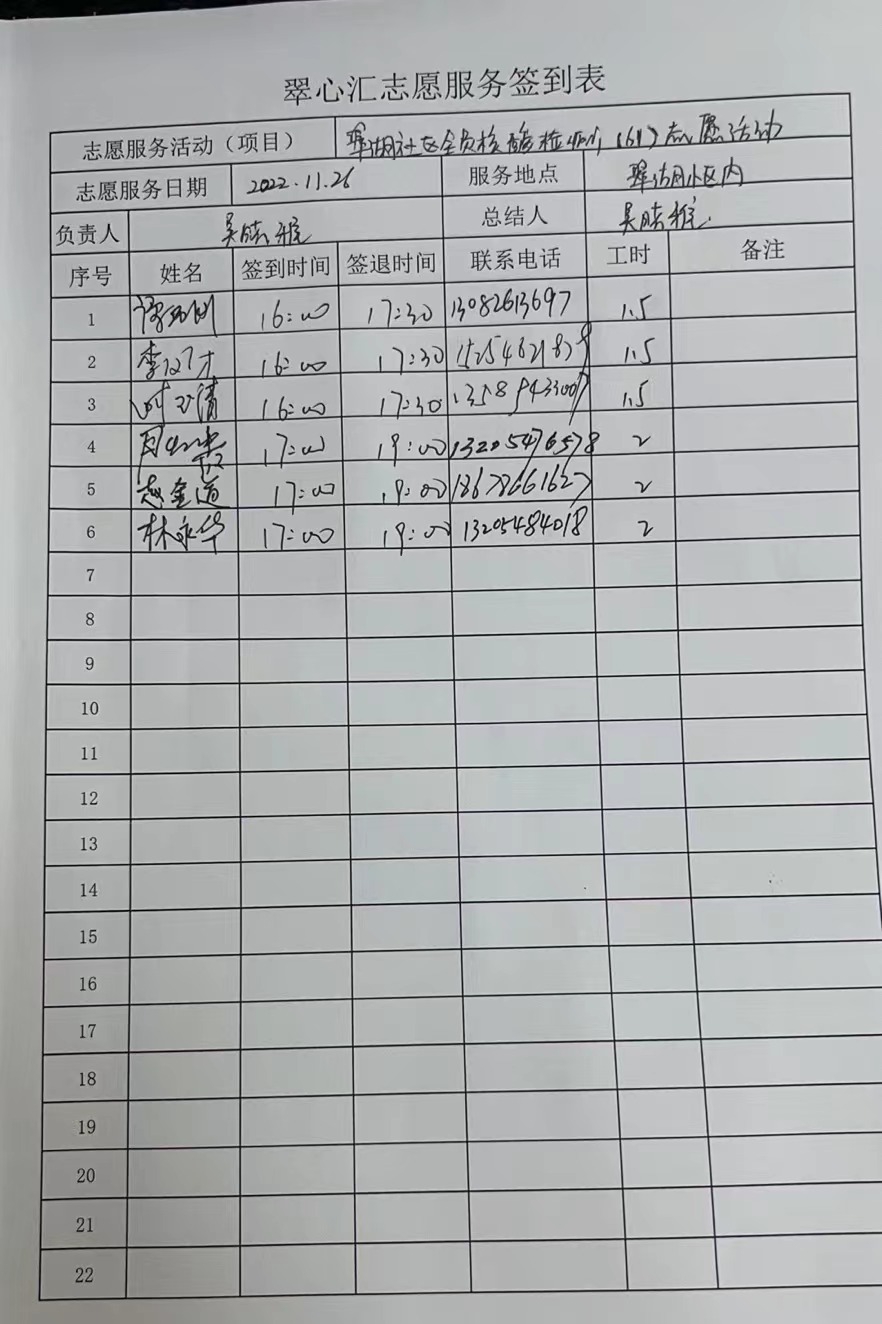 翠心汇志愿服务签到表
志愿服务活动（项目） 翠湖社区全员核酸检测（61）志愿活动
志愿服务日期 2022.11.26 服务地点 翠湖小区内
负责人 吴 雅 总结人 吴 雅
序号 姓名 签到时间 签退时间 联系电话 工时 备注
1 16:00 17:30 13082613697 1.5
2 李 才 16:00 17:30 1.5
3 玉清 16:00 17:30 1.5
4 17:00 19:00 13205476578 2
5 赵金道 17:00 19:00 18678661627 2
6 林永华 17:00 19:00 13205484018 2
7
8
9
10
11
12
13
14
15
16
17
18
19
20
21
22